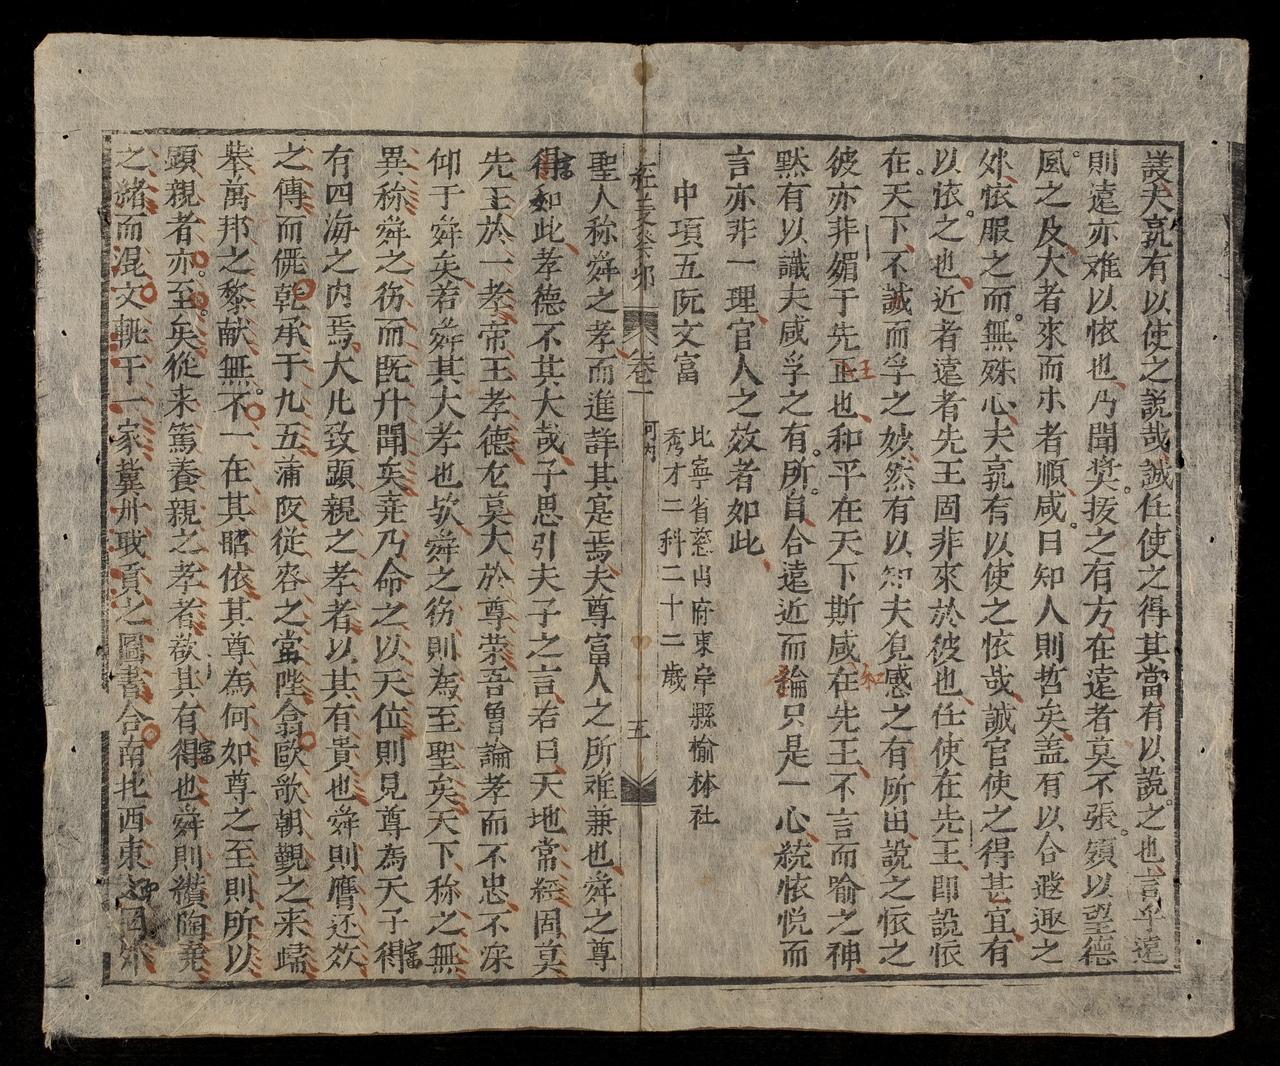 護夫孰有以使之説哉誠任使之得其當有以說之也言乎遠
則遠亦难以恢也乃聞奬拔之有方在遠者莫不張頸以望德
風之及大者來而木者順咸曰知人則哲矣盖有以合遐迩之
处依服之而無殊心夫孰有以使之依哉誠官使之得甚宜有
以依之也近者遠者先王固非來於彼也任使在先王即說恢
在天下不誠而孚之妙然有以知夫覓感之有所出說之恢之
彼亦非媚于先正也和平在天下斯咸在先王不言而喻之神
黙有以識夫咸孚之有所自合遠近而論只是一心統恢悦而
言亦非一理官人之效者如此
中項五阮文富
北寧省慈山府東岸縣榆林社
秀才二科二十二歲
卷一
河内
五
聖人称舜之孝而進詳其寔焉夫尊富人之所难兼也舜之尊
得如此孝德不其大哉子思引夫子之言若曰天地常經固莫
先王於一孝帝王孝德尢莫大於尊荣吾曾論孝而不忠不深
仰于舜矣若舜其大孝也欤舜之徳則為至聖矣天下称之無
異称舜之徳而既升聞矣尭乃命之以天位則見尊為天子得
有四海之内焉大凡致顕親之孝者以其有貴也舜則膺还效
之傳而儷乾承于九五蒲阪從容之當陛翕歐歌朝覲之来歸
举萬邦之黎献無不一在其昭依其尊為何如尊之至則所以
顕親者亦至矣從来篤養親之孝者欲其有得也舜則纘陶尭
之緒而混文軌于一家冀州職貢之圖書合南北西東之